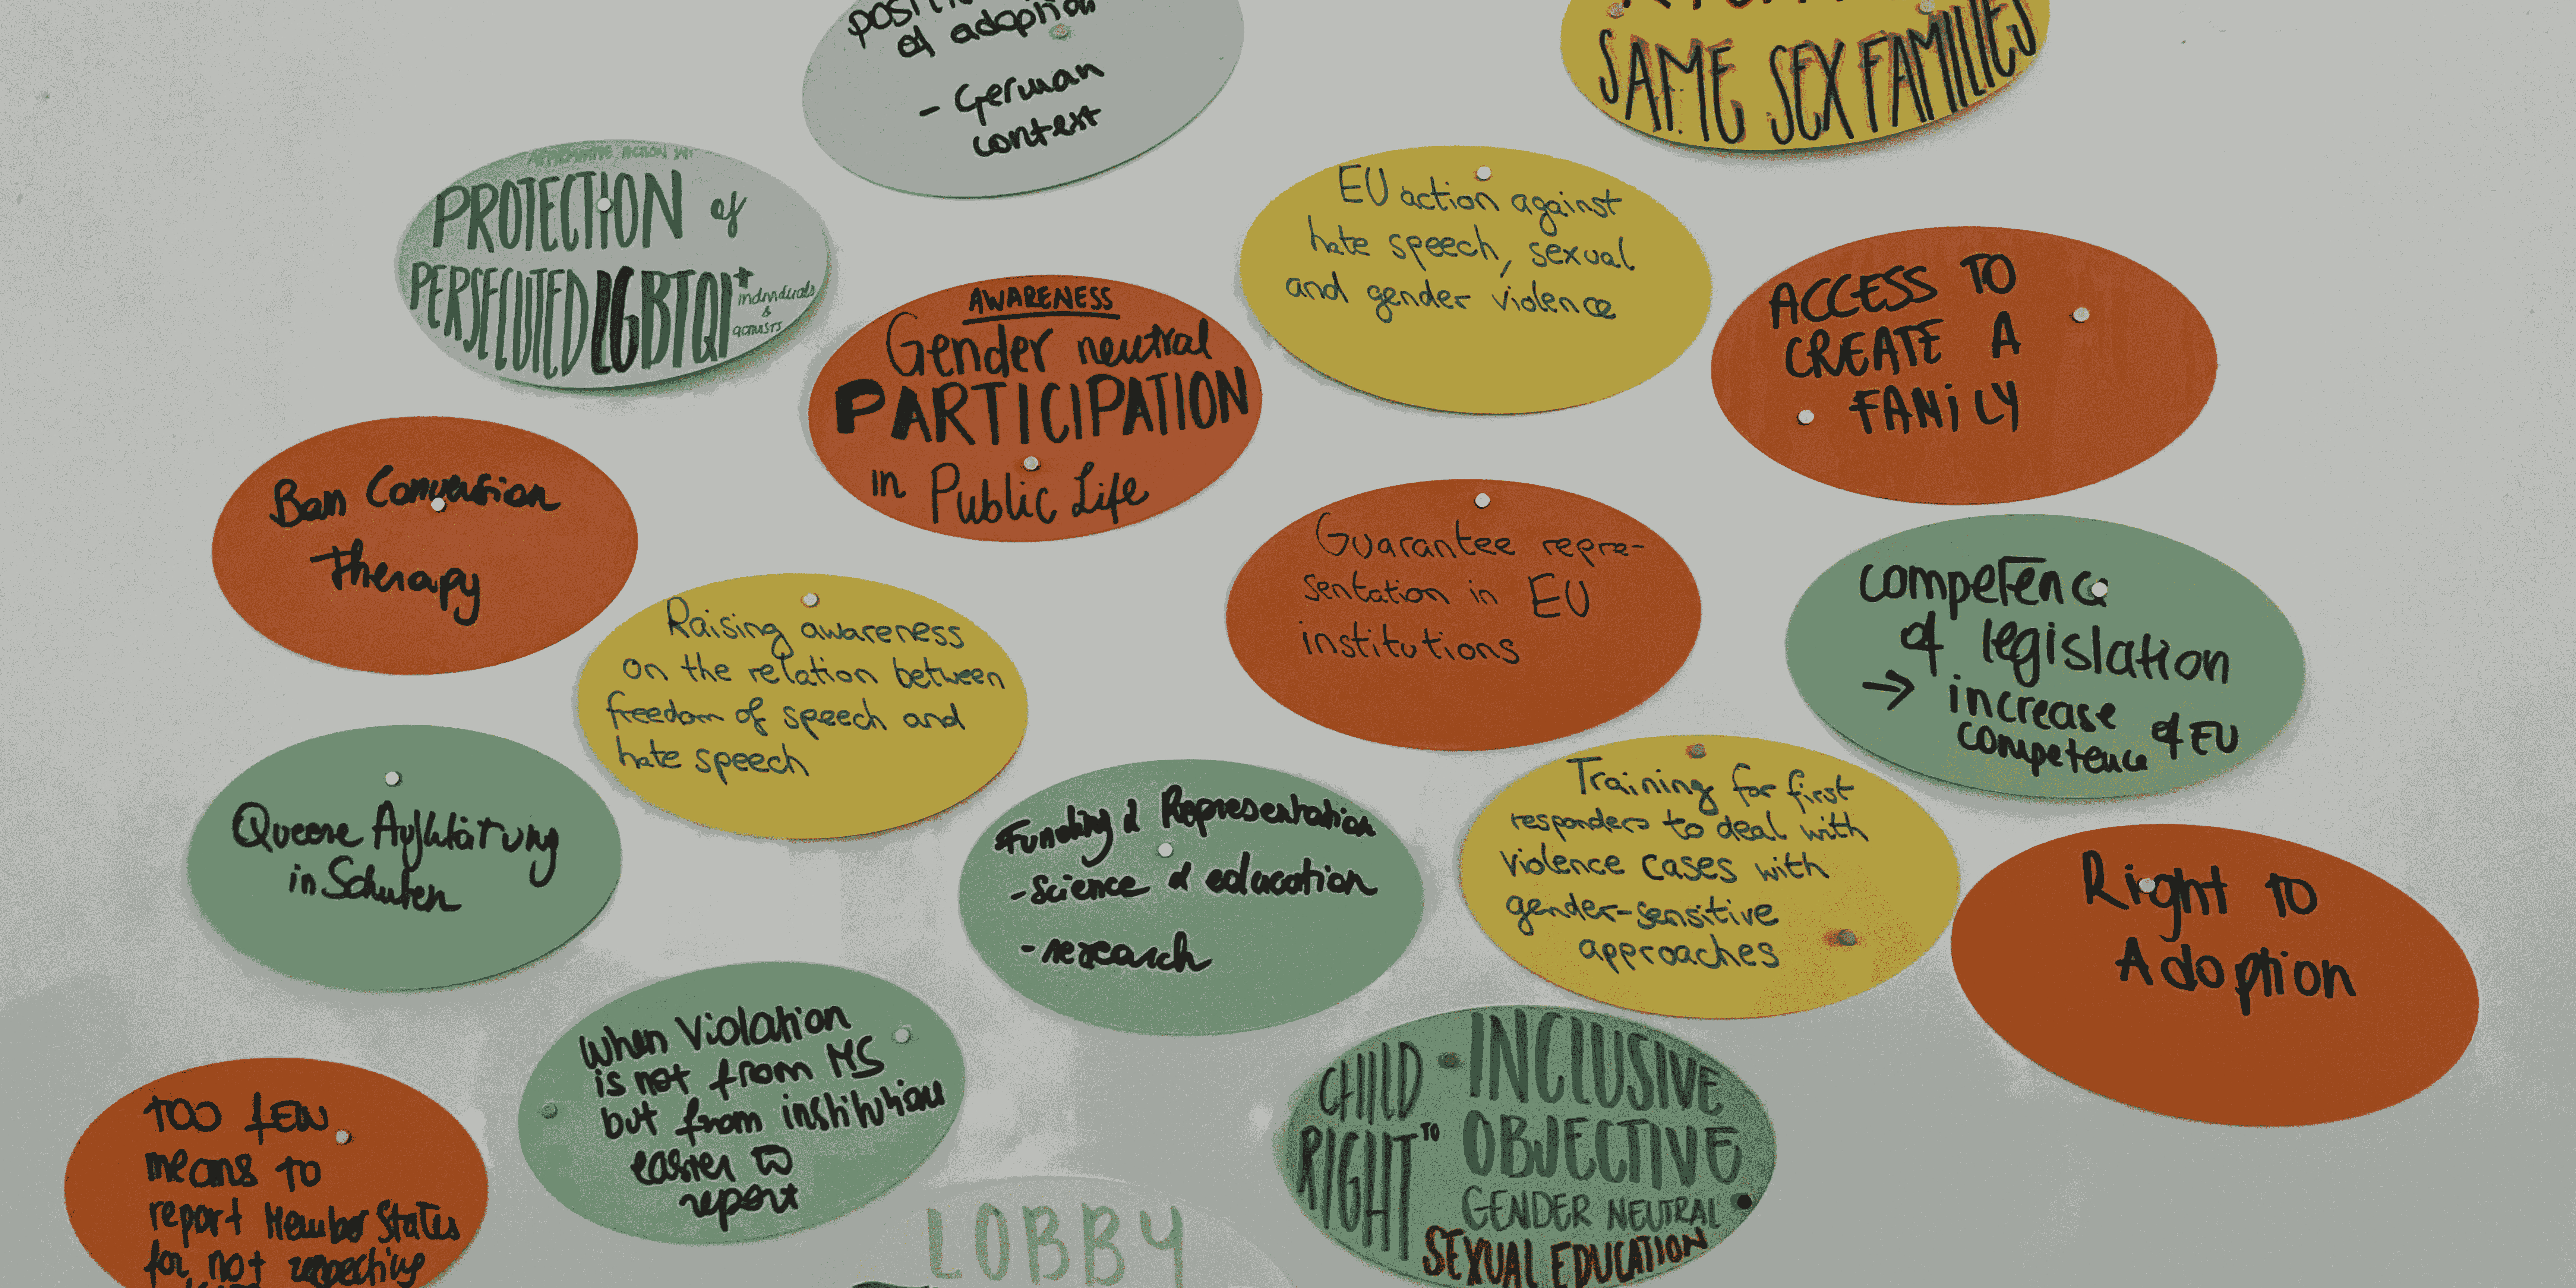 of adoption
- German
context
SAME SEX FAMILIES
AFFIRMATIVE ACTION
PROTECTION of
PERSECUTED LGBTQI+
individuals
&
activists
EU action against
hate speech, sexual
and gender violence
AWARENESS
Gender neutral
PARTICIPATION
in Public Life
ACCESS TO
CREATE A
FAMiLY
Ban Conversion
Therapy
Guarantee repre-
sentation in EU
institutions
Raising awareness
on the relation between
freedom of speech and
hate speech
competence
of legislation
→ increase
competence of EU
Queere Aufklärung
in Schulen
Funding & Representation
- Science & education
- research
Training for first
responders to deal with
violence cases with
gender-sensitive
approaches
Right to
Adoption
When Violation
is not from MS
but from institutions
easier to
report
CHILD
RIGHT TO
INCLUSIVE
OBJECTIVE
GENDER NEUTRAL
SEXUAL EDUCATION
TOO FEW
means to
report Member States
for not respecting
LOBBY